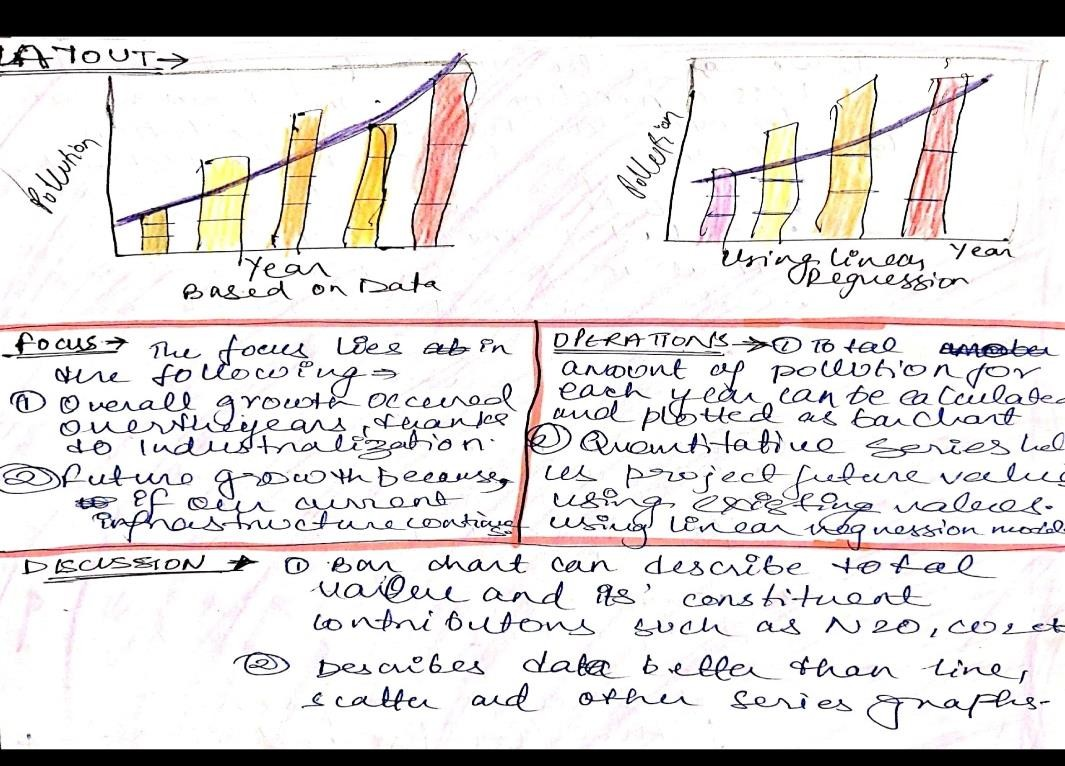 LAYOUT →
Pollution
Year
Based on Data
Pollution
Year
Using Linear
Regression
Focus → The focus lies in
the following →
① Overall growth occured
over the years, thanks
to Industrialization.
② Future growth because,
if our current
infrastructure continues
OPERATIONS → ① Total
amount of pollution for
each year can be calculated
and plotted as bar chart
② Quantitative Series hel
us project future value
using existing values.
using linear regression model
DISCUSSION → ① Bar chart can describe total
value and its' constituent
contributors such as N2O, CO2 et
② Describes data better than line,
scatter and other series graphs.